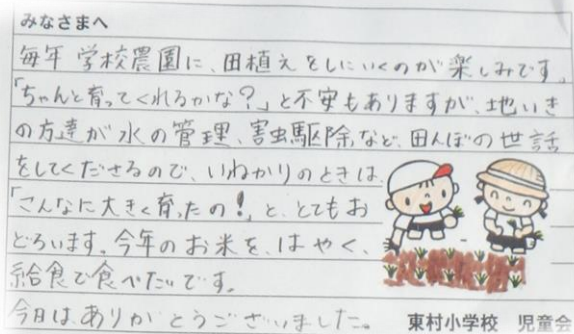 みなさまへ
毎年学校農園に、田植えをしにいくのが楽しみです。
「ちゃんと育ってくれるかな？」と不安もありますが、地いき
の方達が水の管理、害虫駆除など、田んぼの世話
をしてくださるので、いねかりのときは、
「こんなに大きく育ったの！」と、とてもお
どろいます。今年のお米を、はやく、
給食で食べたいです。
今日は、ありがとうございました。
東村小学校 児童会